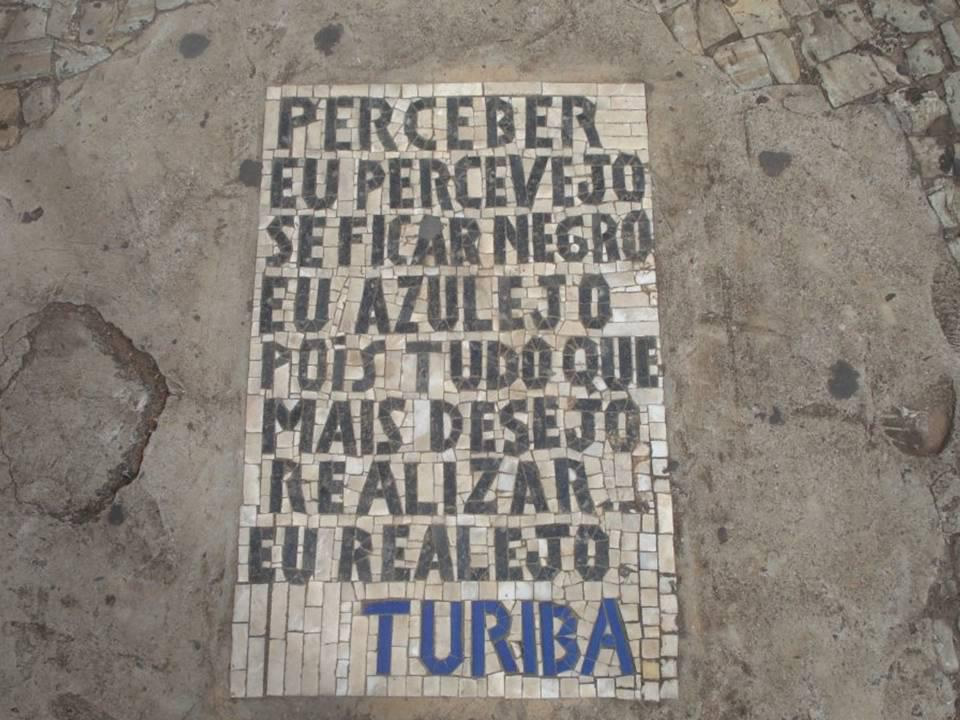 PERCEBER
EU PERCEVEJO
SE FICAR NEGRO
EU AZULEJO
POIS TUDO QUE
MAIS DESEJO
REALIZAR...
EU REALEJO
TURIBA